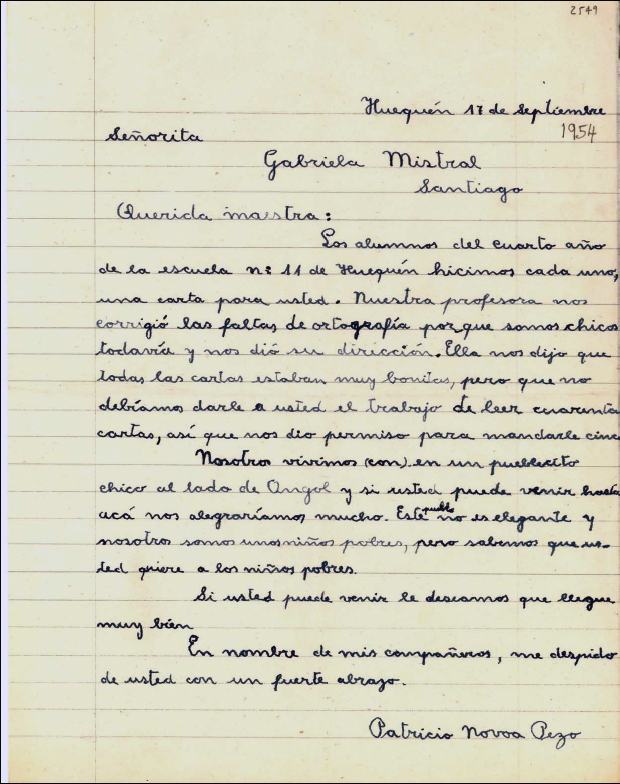 2549
Huequén 17 de Septiembre
1954
Señorita
Gabriela Mistral
Santiago
Querida maestra:
Los alumnos del cuarto año
de la escuela n: 11 de Huequén hicimos cada uno,
una carta para usted. Nuestra profesora nos
corrigió las faltas de ortografía por que somos chicos
todavía y nos dió su dirección. Ella nos dijo que
todas las cartas estaban muy bonitas, pero que no
debíamos darle a usted el trabajo de leer cuarenta
cartas, así que nos dio permiso para mandarle cinc
Nosotros vivimos (con) en un pueblecito
chico al lado de Angol y si usted puede venir hasta
acá nos alegraríamos mucho. Este pueblo no es elegante y
nosotros somos unos niños pobres, pero sabemos que us-
ted quiere a los niños pobres.
Si usted puede venir le deseamos que llegue
muy bién
En nombre de mis compañeros, me despido
de usted con un fuerte abrazo.
Patricio Novoa Pezo